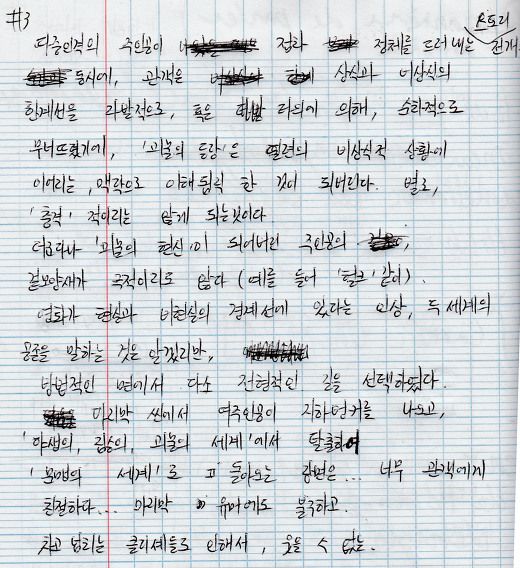 #3
스토리
다중인격의 주인공이 점차 정체를 드러내는 전개
동시에, 관객은 상식과 비상식의
한계선을 자발적으로, 혹은 타의에 의해, 순차적으로
무너뜨렸기에, '괴물의 등장'은 일련의 비상식적 상황에
이어지는, 맥락으로 이해됨직 한 것이 되버린다. 별로,
'충격' 적이지는 않게 되는것이다
더군다나 '괴물의 현신'이 되어버린 주인공의
겉모양새가 극적이지도 않다 (예를 들어 '헐크' 같이).
영화가 현실과 비현실의 경계선에 있다는 인상, 두 세계의
공존을 말하는 것은 알겠지만,
방법적인 면에서 다소 전형적인 길을 선택하였다.
마지막 씬에서 여주인공이 지하벙커를 나오고,
'야생의, 짐승의, 괴물의 세계'에서 탈출하여
'문명의 세계'로 돌아오는 장면은... 너무 관객에게
친절하다... 마지막 유머에도 불구하고.
차고 넘치는 클리셰들로 인해서, 웃을 수 없는.